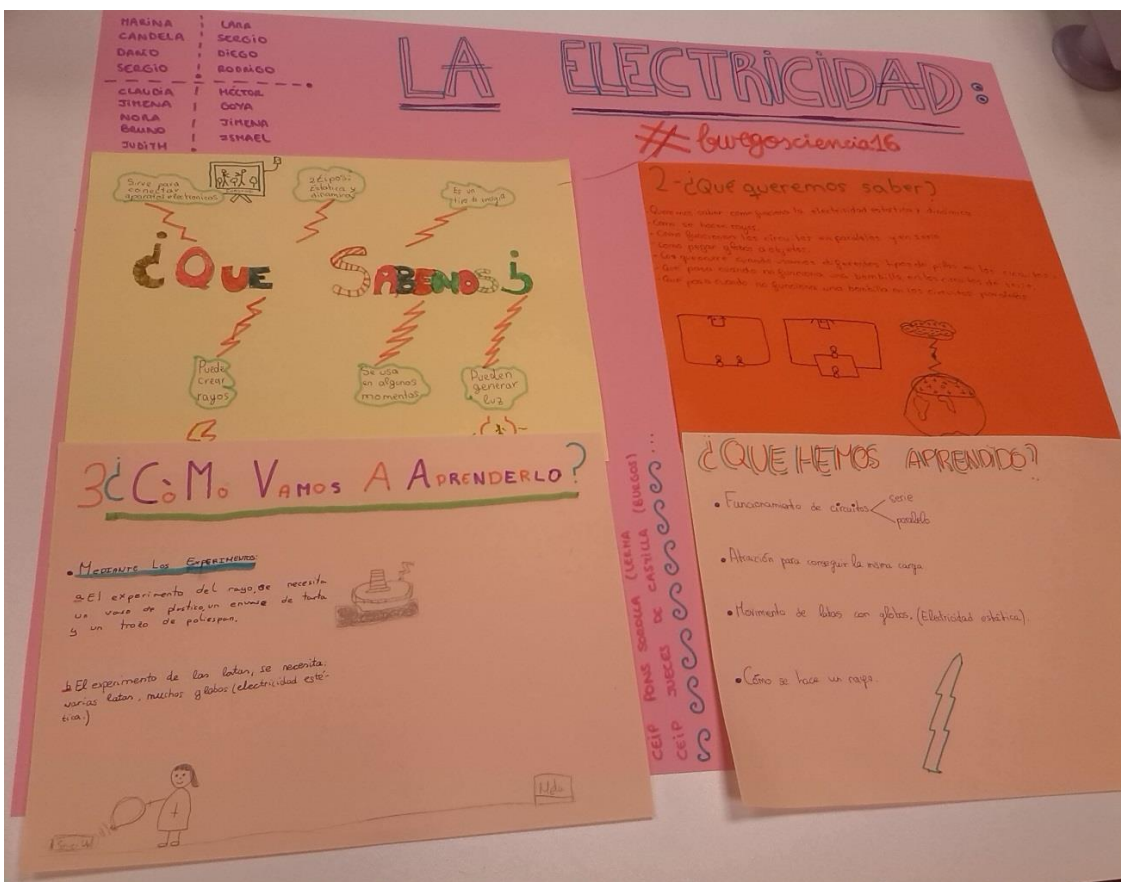 MARINA
CANDELA
DARÍO
SERGIO
LARA
SERGIO
DIEGO
RODRIGO
CLAUDIA
JIMENA
NORA
BRUNO
JUDITH
HÉCTOR
GOYA
JIMENA
ISMAEL
LA ELECTRICIDAD:
#burgosciencia16
Sirve para
conectar
aparatos electronicos
2 tipos:
Estática y
dinámica
Es un
tipo de energía
¿QUE SABEMOS?
Puede
crear
rayos
Se usa
en algunos
momentos
Pueden
generar
luz
2-¿Qué queremos saber?
Queremos saber como funciona la electricidad estática y dinámica
-Como se hacen rayos.
-Como funcionan los circuitos en paralelos y en serie.
-Como pegar globos a objetos.
-Que pasa cuando no funciona una bombilla en los circuitos de serie.
-Que pasa cuando no funciona una bombilla en los circuitos paralelos.
3¿CÓMO VAMOS A APRENDERLO?
• MEDIANTE LOS EXPERIMENTOS:
a El experimento del rayo, se necesita
un vaso de plastico, un envase de tarta
y un trozo de poliespan.
b El experimento de las latas, se necesita:
varias latas, muchos globos (electricidad está-
tica.)
CEIP PONS SOROLLA (LERMA (BURGOS)
CEIP JUECES DE CASTILLA
¿QUE HEMOS APRENDIDO?
• Funcionamiento de circuitos
serie
paralelo
• Atracción para conseguir la misma carga
• Movimiento de latas con globos. (Electricidad estática).
• Cómo se hace un rayo.